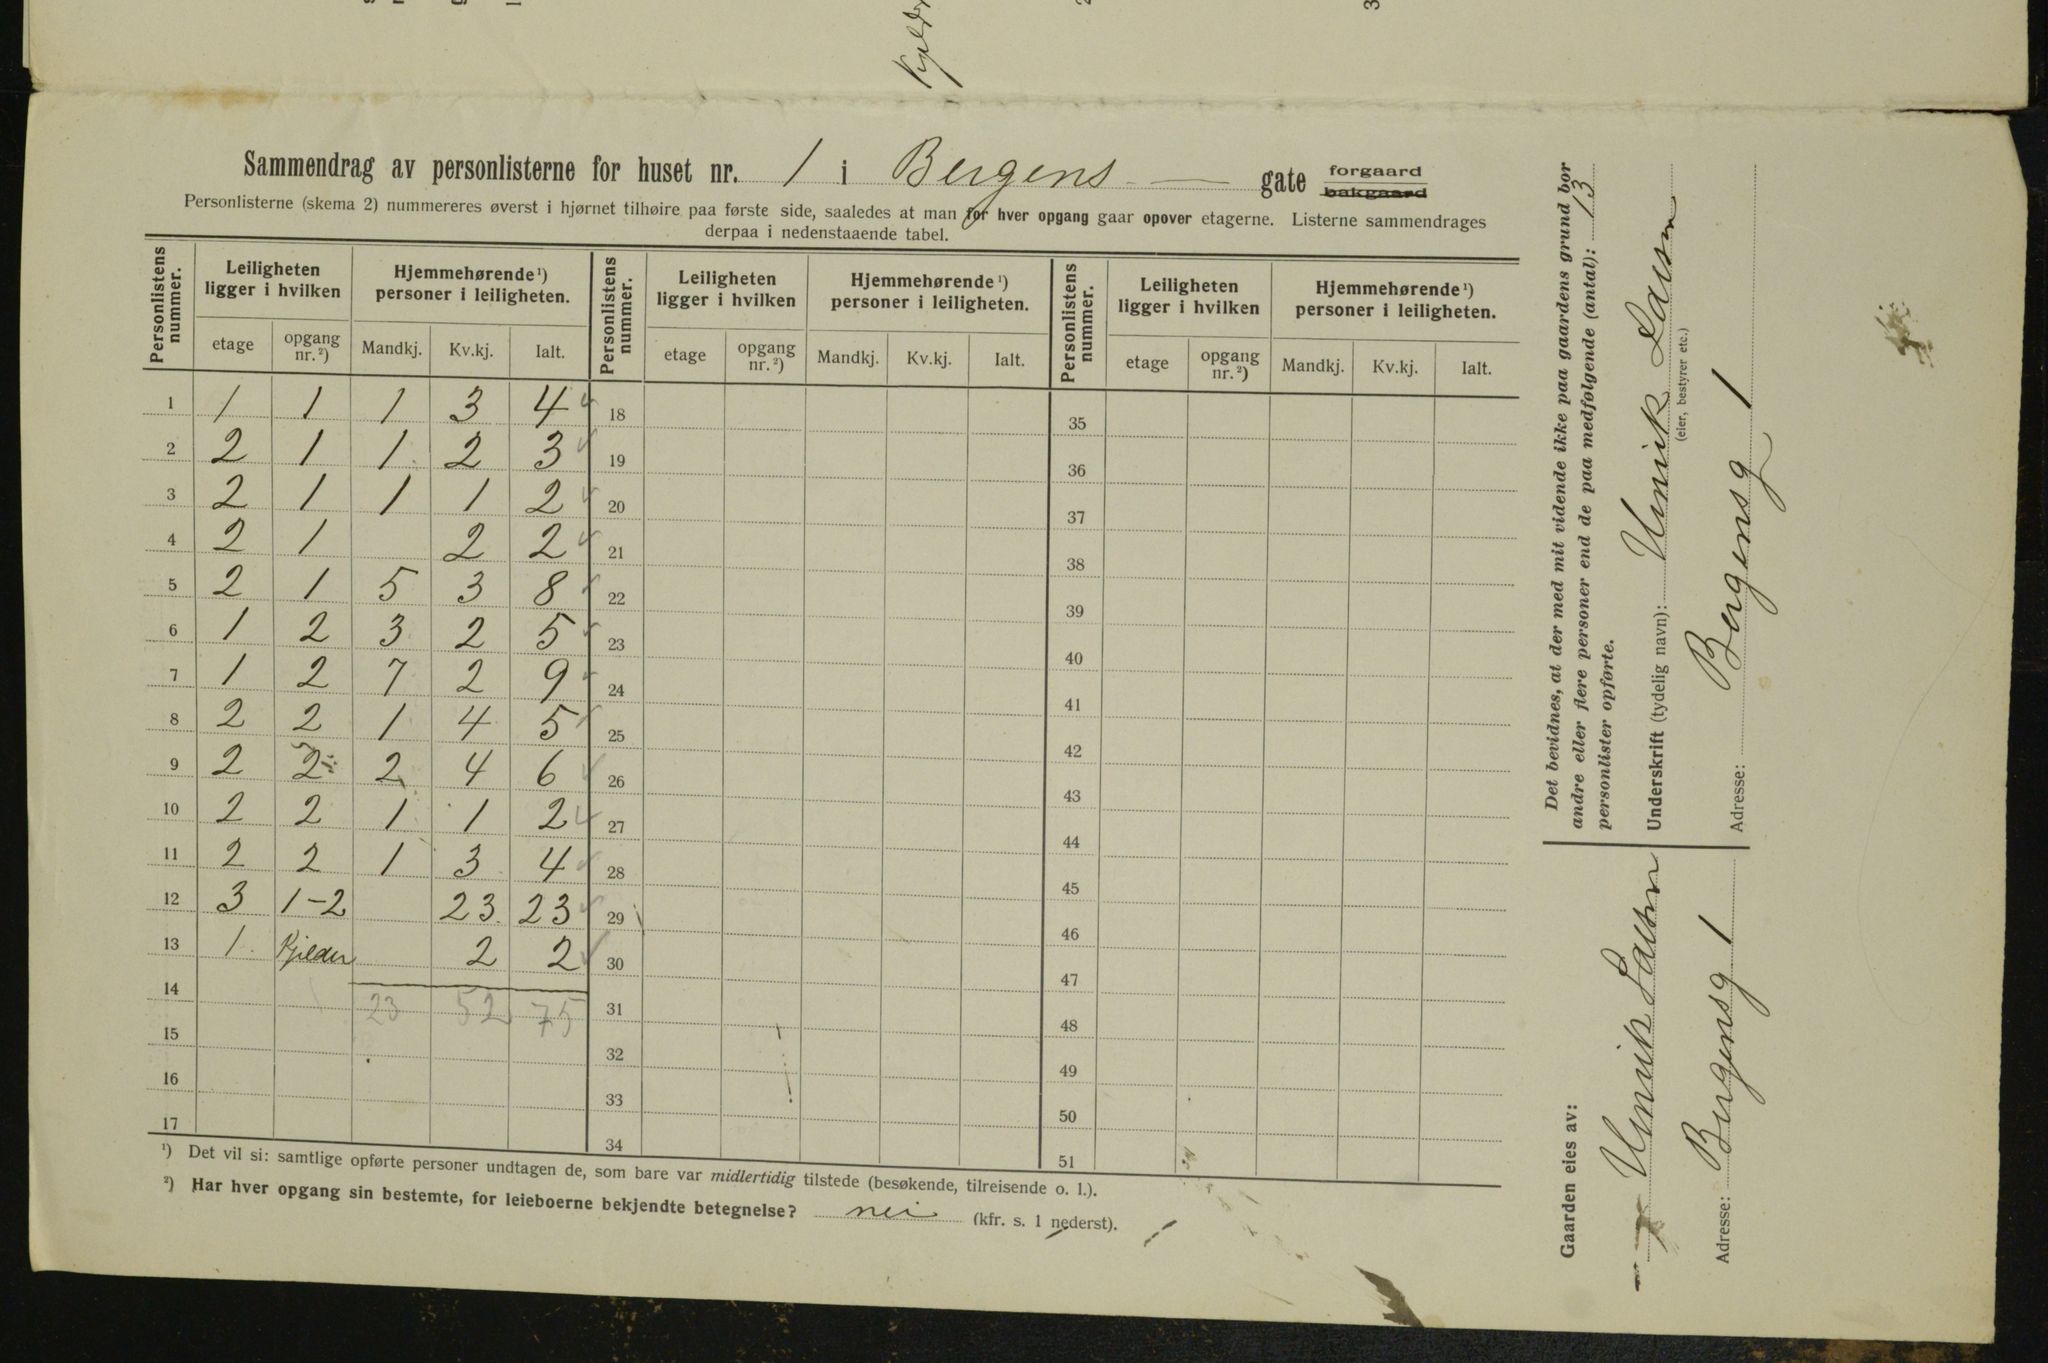 Sammendrag av personlisterne for huset nr. 1 i Bergens — gate forgaard
bakgaard
Personlisterne (skema 2) nummereres øverst i hjørnet tilhøire paa første side, saaledes at man for hver opgang gaar opover etagerne. Listerne sammendrages
derpaa i nedenstaaende tabel.
Personlistens nummer. Leiligheten ligger i hvilken Hjemmehørende ¹) personer i leiligheten. Personlistens nummer. Leiligheten ligger i hvilken Hjemmehørende ¹) personer i leiligheten. Personlistens nummer. Leiligheten ligger i hvilken Hjemmehørende ¹) personer i leiligheten.
etage opgang nr. ²) Mandkj. Kv.kj. Ialt. etage opgang nr. ²) Mandkj. Kv.kj. Ialt. etage opgang nr. ²) Mandkj. Kv.kj. Ialt.
1 1 1 1 3 4 18 35
2 2 1 1 2 3 19 36
3 2 1 1 1 2 20 37
4 2 1 2 2 21 38
5 2 1 5 3 8 22 39
6 1 2 3 2 5 23 40
7 1 2 7 2 9 24 41
8 2 2 1 4 5 25 42
9 2 2 2 4 6 26 43
10 2 2 1 1 2 27 44
11 2 2 1 3 4 28 45
12 3 1-2 23 23 29 46
13 1 Kjelder 2 2 30 47
14 23 52 75 31 48
15 32 49
16 33 50
17 34 51
¹) Det vil si: samtlige opførte personer undtagen de, som bare var midlertidig tilstede (besøkende, tilreisende o. l.).
²) Har hver opgang sin bestemte, for leieboerne bekjendte betegnelse? nei (kfr. s. 1 nederst).
Det bevidnes, at der med mit vidende ikke paa gaardens grund bor
andre eller flere personer end de paa medfølgende (antal): 13
personlister opførte.
Underskrift (tydelig navn):
(eier, bestyrer etc.)
Adresse: Bergensg 1
Gaarden eies av:
Adresse: Bergensg 1